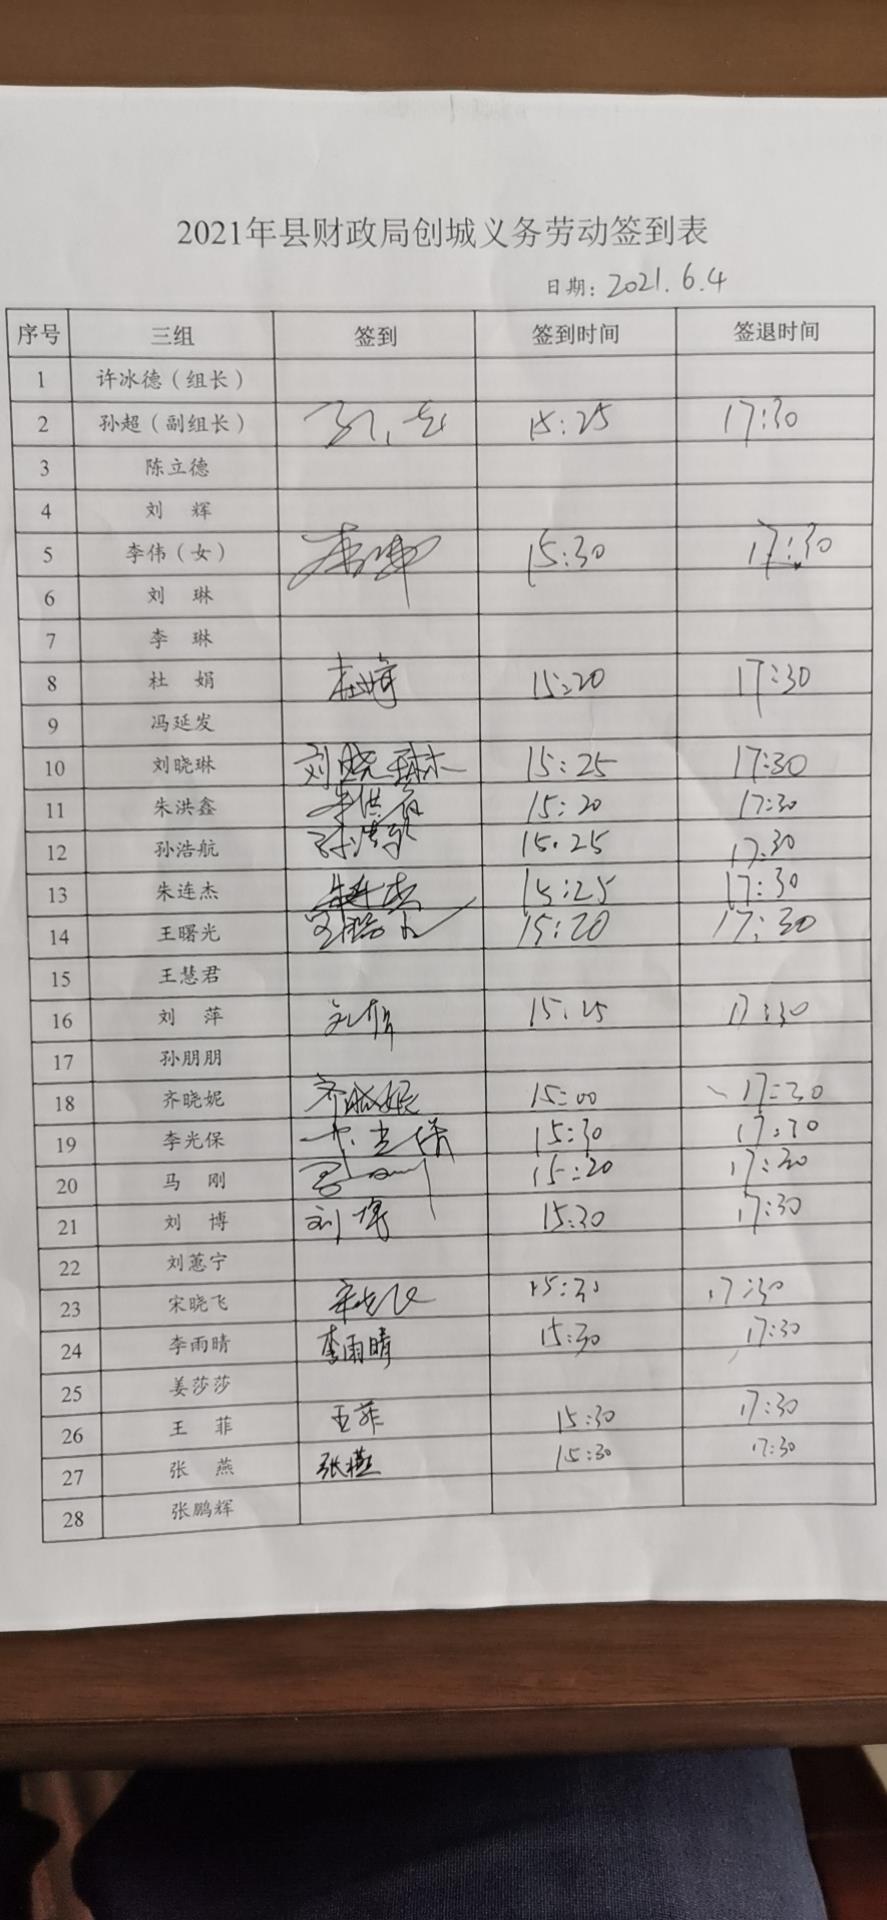 2021年县财政局创城义务劳动签到表
日期：2021.6.4
序号 三组 签到 签到时间 签退时间
1 许冰德（组长）
2 孙超（副组长） 15:25 17:30
3 陈立德
4 刘 辉
5 李伟（女） 李伟 15:30 17:30
6 刘 琳
7 李 琳
8 杜 娟 杜娟 15:20 17:30
9 冯延发
10 刘晓琳 刘晓琳 15:25 17:30
11 朱洪鑫 15:20 17:30
12 孙浩航 孙浩航 15.25 17.30
13 朱连杰 朱连杰 15:25 17:30
14 王曙光 15:20 17:30
15 王慧君
16 刘 萍 15:25 17:30
17 孙朋朋
18 齐晓妮 齐晓妮 15:00 17:30
19 李光保 李光保 15:30 17:30
20 马 刚 15:20 17:30
21 刘 博 刘博 15:30 17:30
22 刘蕙宁
23 宋晓飞 宋晓飞 15:30 17:30
24 李雨晴 李雨晴 15:30 17:30
25 姜莎莎
26 王 菲 王菲 15:30 17:30
27 张 燕 张燕 15:30 17:30
28 张鹏辉